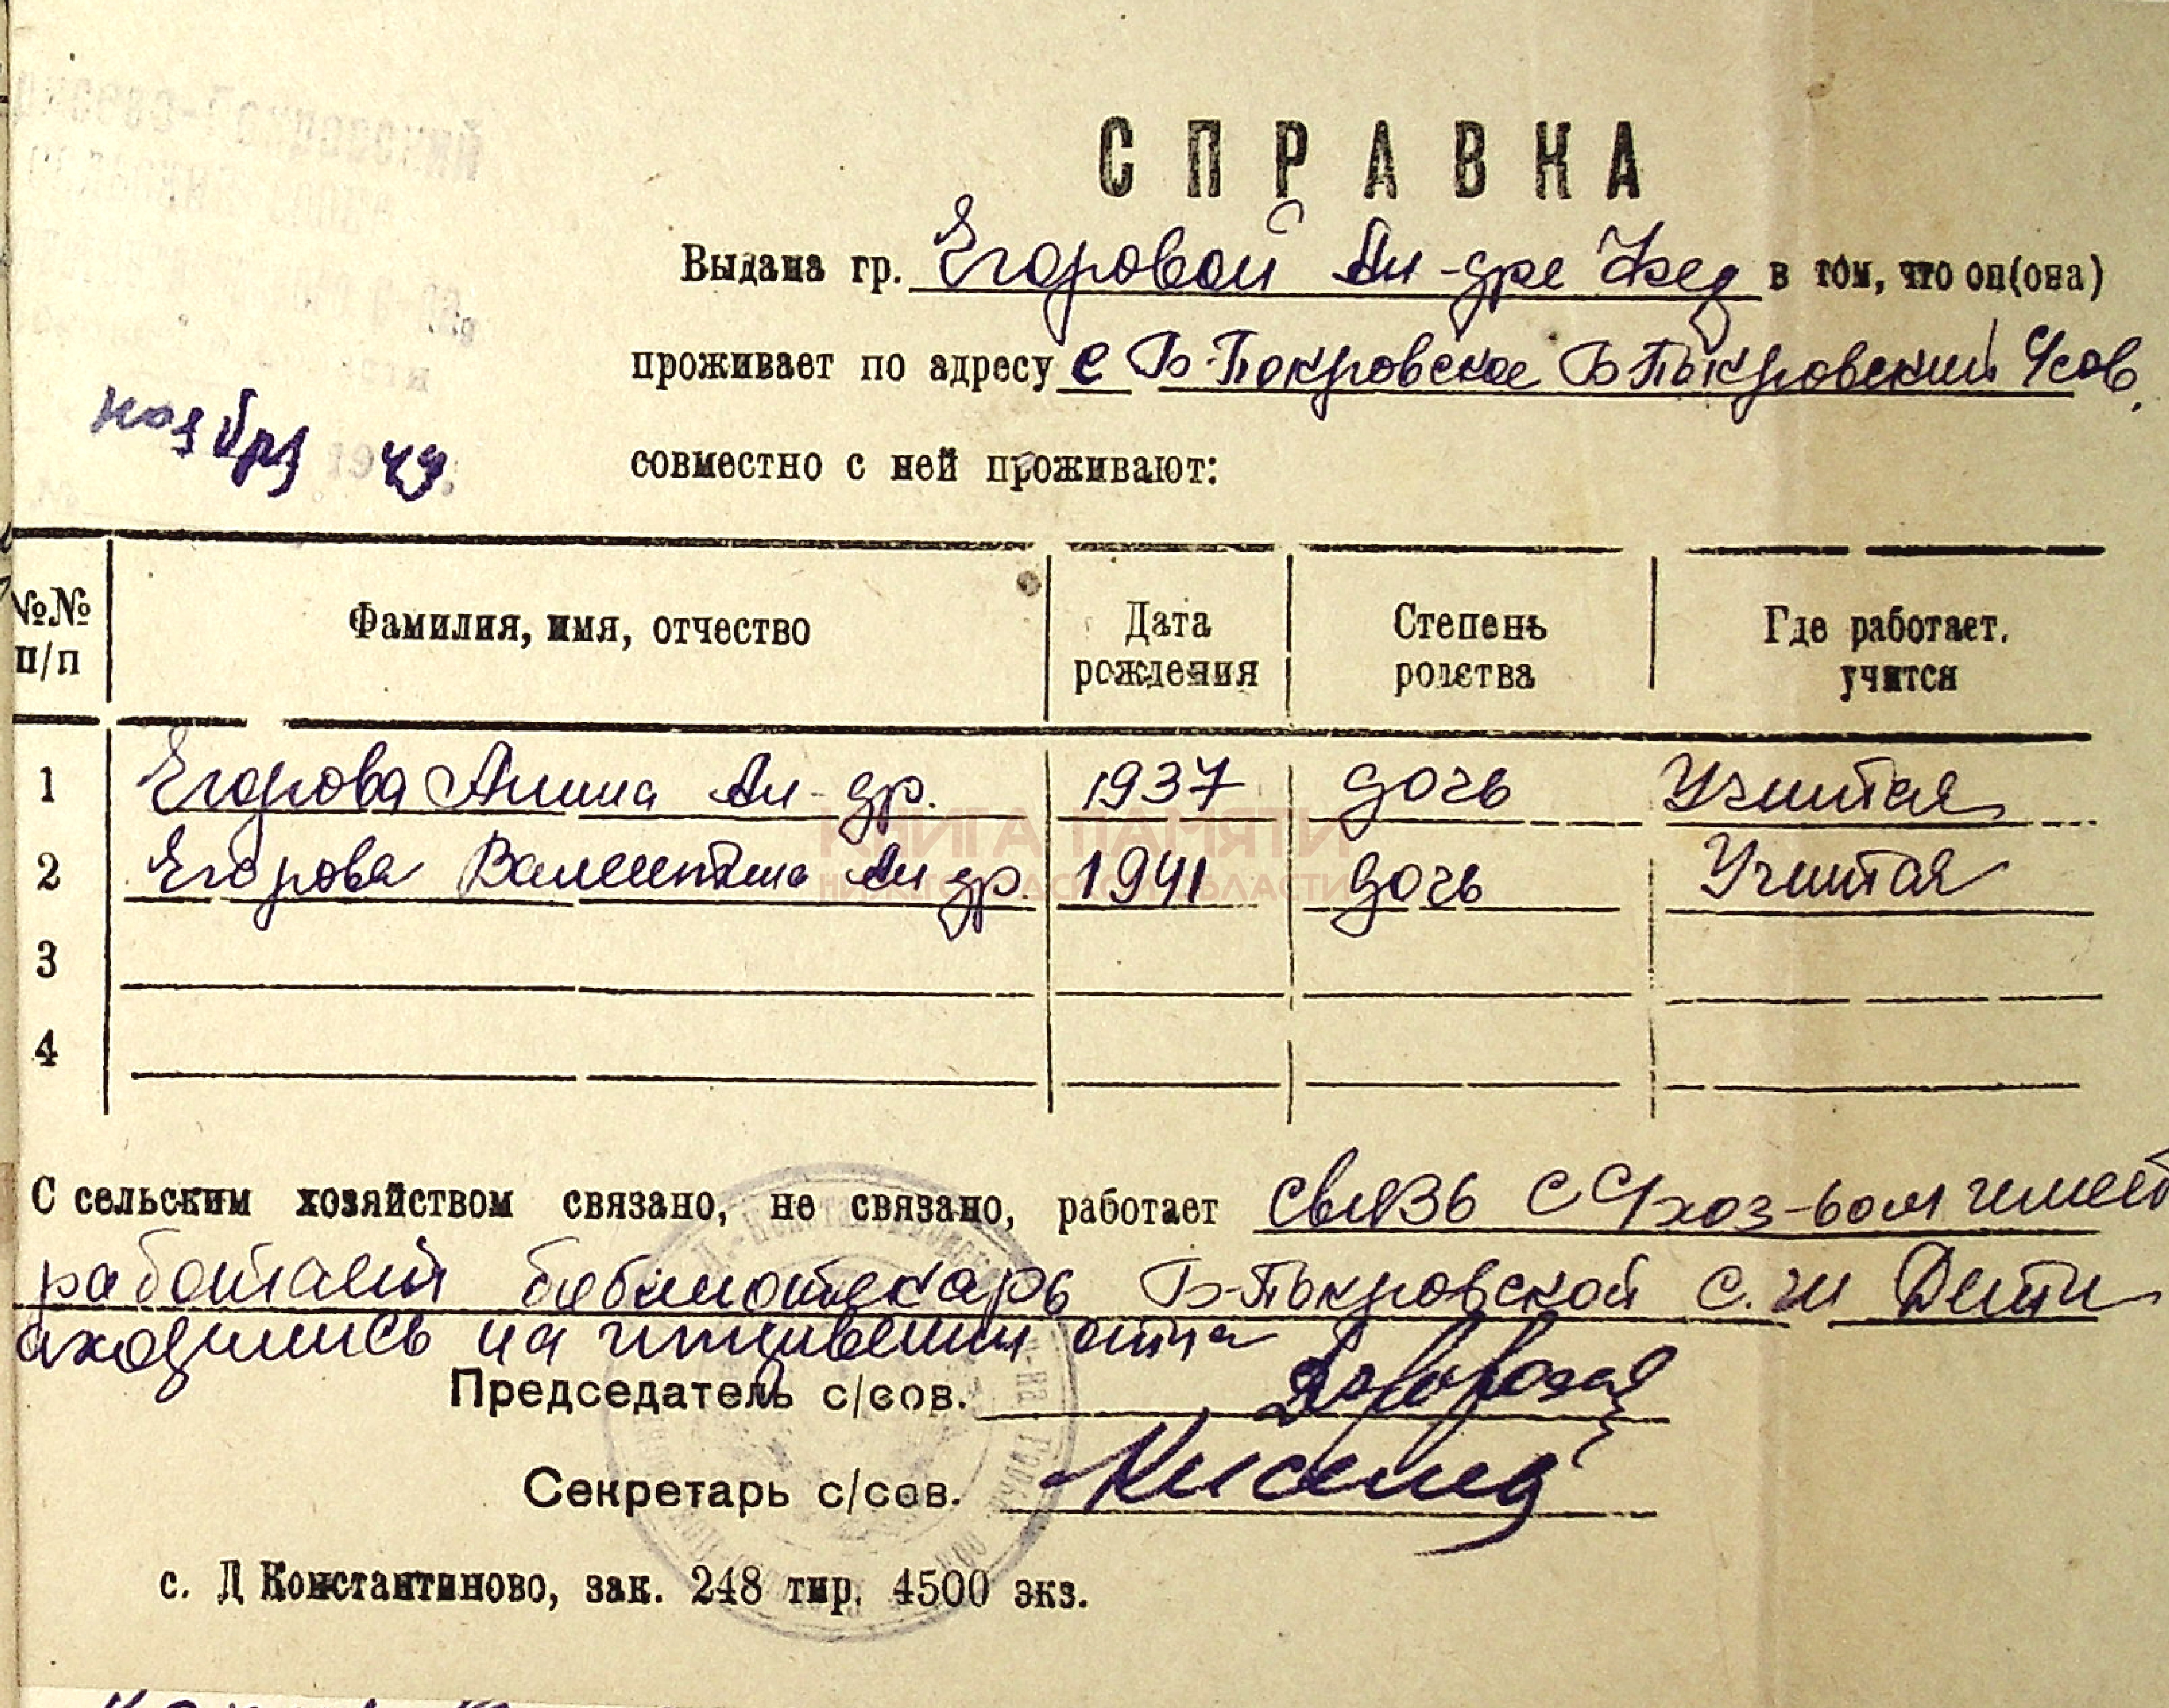 СПРАВКА
Выдана гр. Егоровой Ал-дре Фед в том, что он(она)
проживает по адресу с Б-Покровское Б Покровский с/сов.
ноября 49
совместно с ней проживают:
№№ п/п Фамилия, имя, отчество Дата рождения Степень родства Где работает. учится
1 Егорова Ал-др. 1937 дочь Учится
2 Егорова Валентина Ал др. 1941 дочь Учится
3
4
КНИГА ПАМЯТИ
НИЖЕГОРОДСКОЙ ОБЛАСТИ
С сельским хозяйством связано, не связано, работает связь с с/хоз-вом имеет
работает библиотекарь Б-Покровской с.ш Дети
аходились на иждивении отца
Председатель с/сов.
Секретарь с/сов.
с. Д Константиново, зак. 248 тир. 4500 экз.